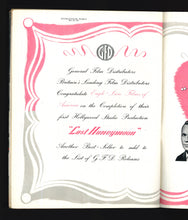 General Film Distributors
Britain's Leading Film Distributors
Congratulate Eagle-Lion Films of
America on the Completion of their
first Hollywood Studio Production
"Lost Honeymoon"
Another Best-Seller to add to
the List of G.F.D. Releases